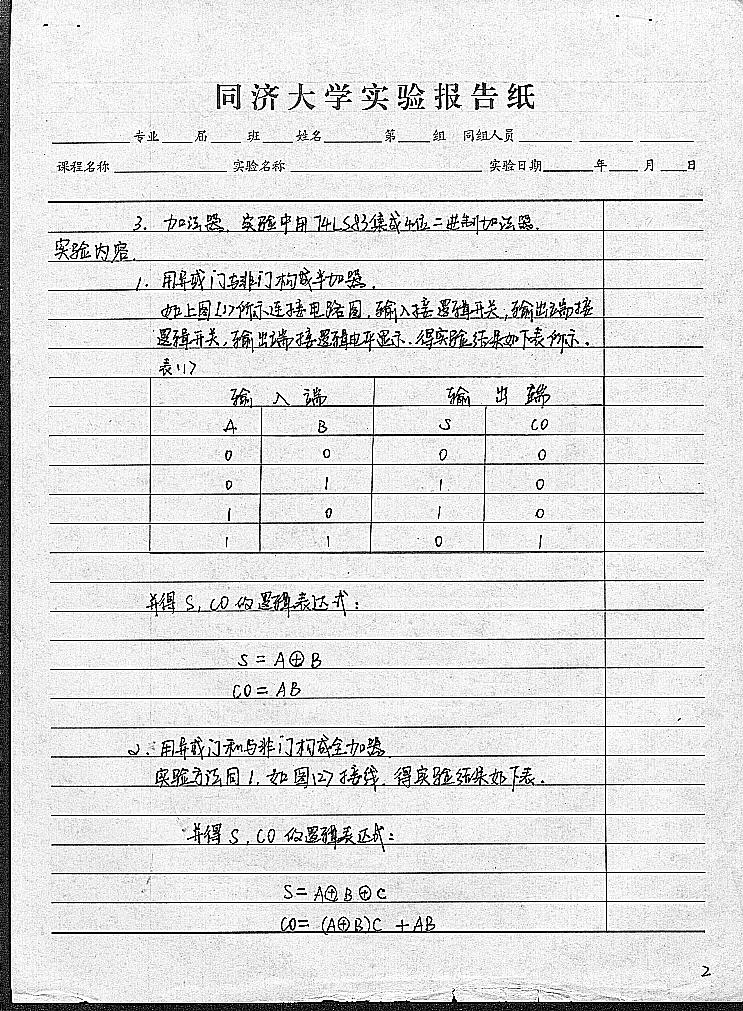 同济大学实验报告纸
专业 届 班 姓名 第 组 同组人员
课程名称 实验名称 实验日期 年 月 日
3. 加法器. 实验中用74LS83集成4位二进制加法器.
实验内容.
1. 用异或门与非门构成半加器.
如上图(1)所示连接电路图, 输入接逻辑开关, 输出端接
逻辑开关, 输出端接逻辑电平显示. 得实验结果如下表所示.
表(1)
输入端 输出端
A B S CO
0 0 0 0
0 1 1 0
1 0 1 0
1 1 0 1
并得 S, CO 的逻辑表达式:
S = A⊕B
CO = AB
2. 用异或门和与非门构成全加器.
实验方法同1. 如图(2)接线, 得实验结果如下表.
并得 S, CO 的逻辑表达式:
S = A⊕B⊕C
CO = (A⊕B)C + AB
2